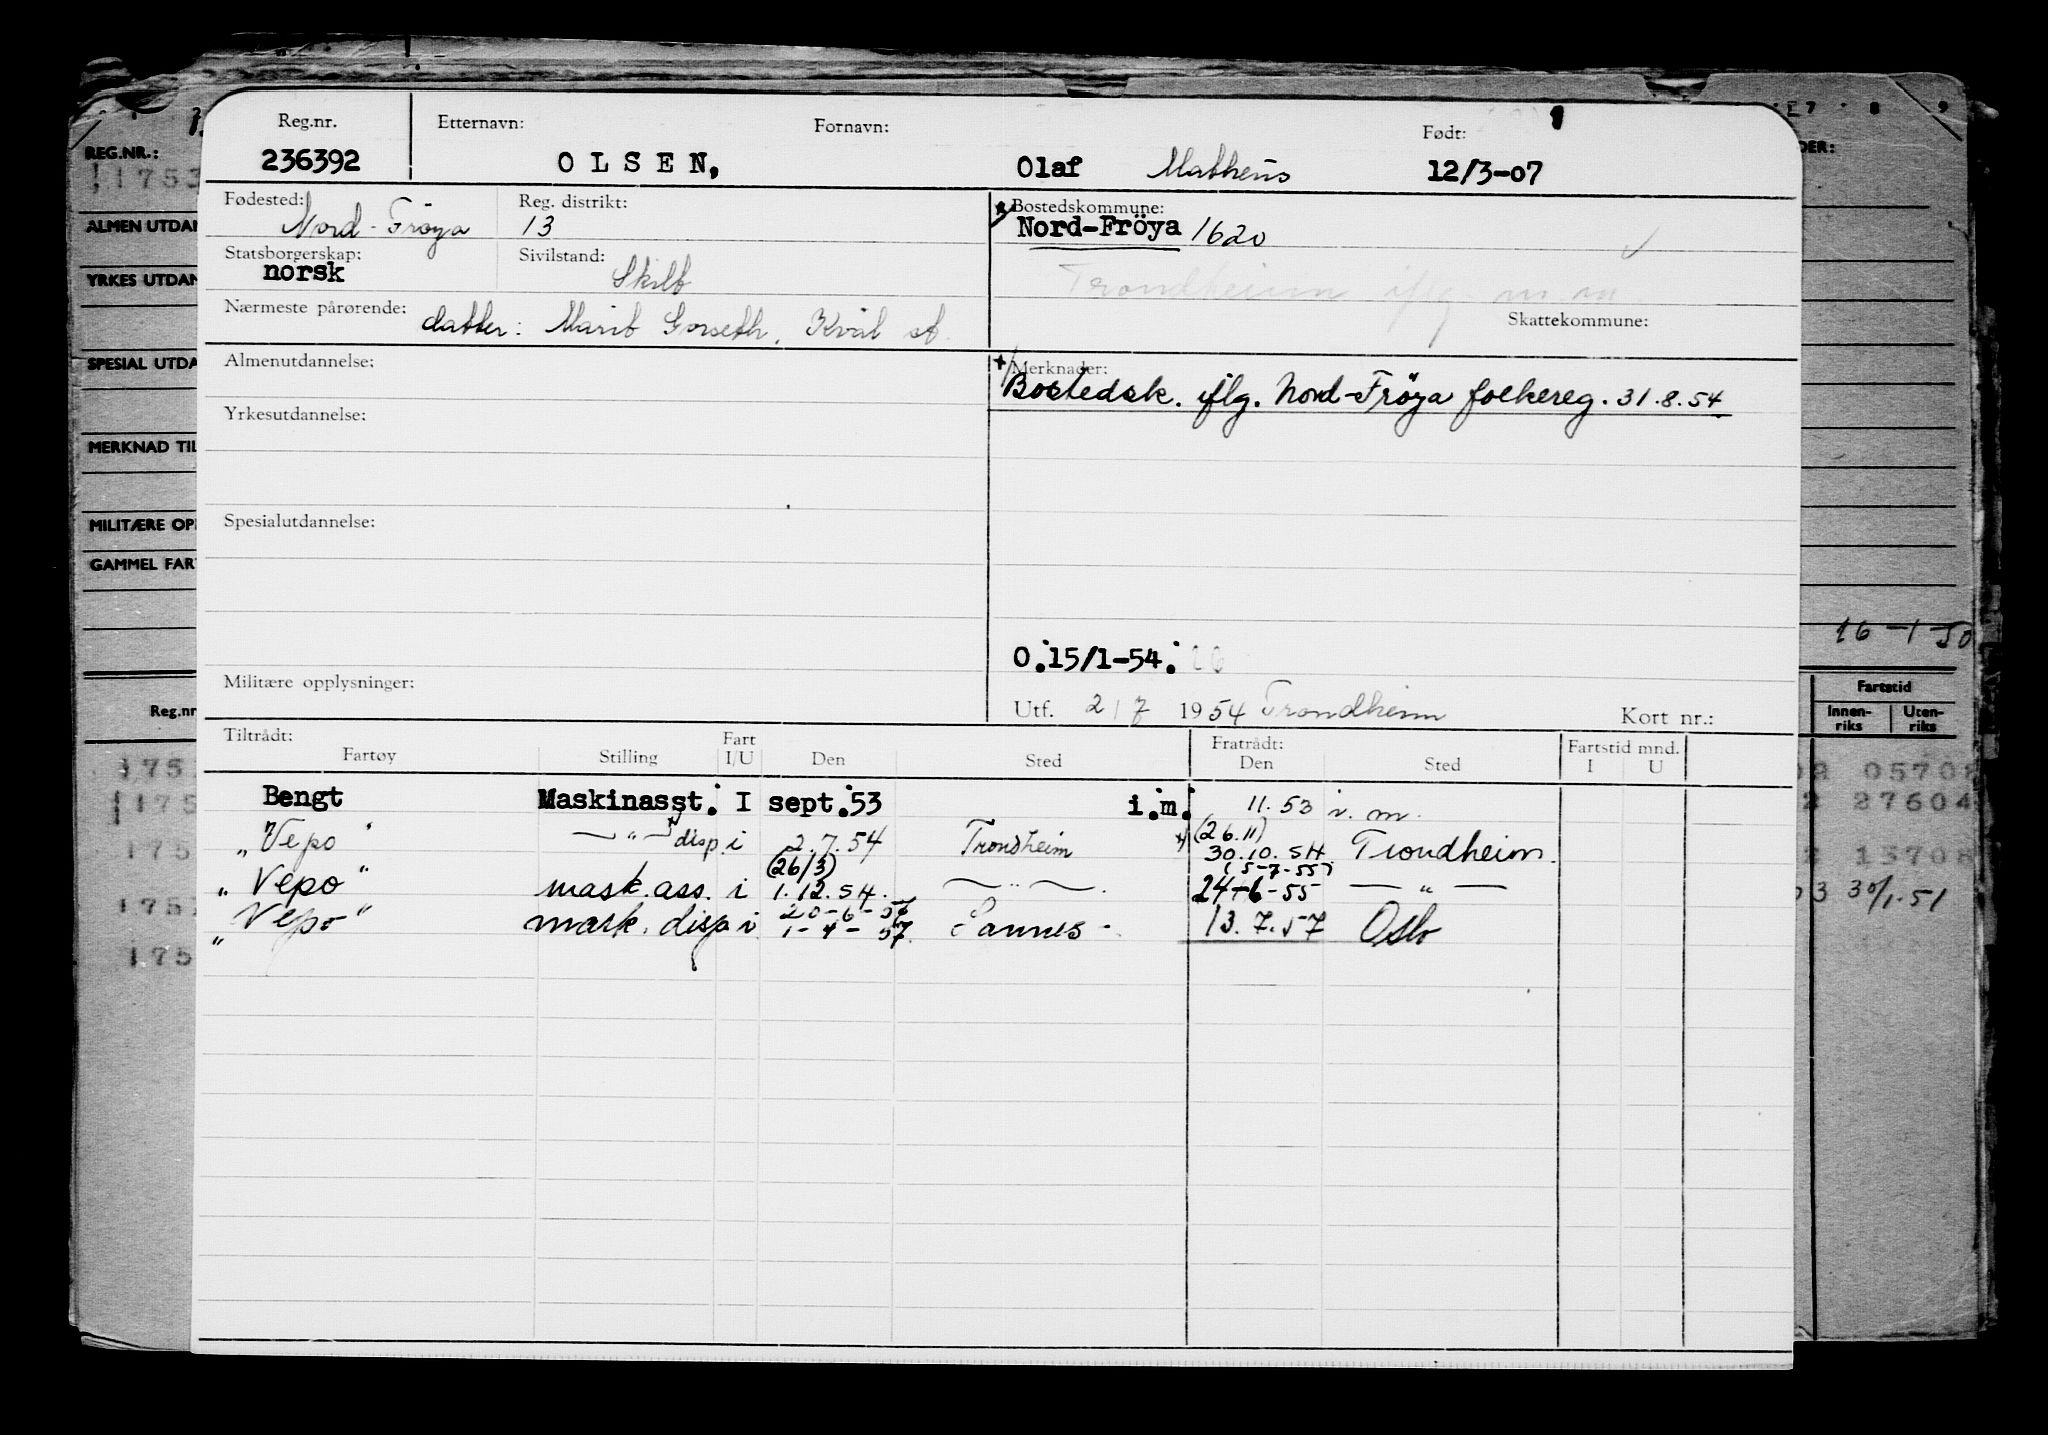 Reg.nr. Etternavn: Fornavn: Født:
236392 OLSEN, Olaf Matheus 12/3-07
Fødested: Reg. distrikt: Bostedskommune:
Nord-Fröya 13 Nord-Fröya 1620
Statsborgerskap: Sivilstand:
norsk Skilt Trondheim iflg. m.m.
Nærmeste pårørende: Skattekommune:
datter: Marit Gorseth, Kvål st.
Almenutdannelse: Merknader:
Bostedsk. iflg. Nord-Fröya folkereg. 31.8.54
Yrkesutdannelse:
Spesialutdannelse:
O.15/1-54.
Militære opplysninger:
Utf. 2/7 1954 Trondheim Kort nr.:
Tiltrådt: Fart Fratrådt: Fartstid mnd.
Fartøy Stilling I/U Den Sted Den Sted I U
Bengt Maskinasst. I sept.53 i.m. 11.53 i.m.
(26.11)
"Vepo" — " — disp. i 2.7.54 Trondheim 30.10.54 Trondheim.
(26/3) (5-7-55)
"Vepo" mask.ass. i 1.12.54. — " — 24-6-55 — " —
20-6-56
"Vepo" mask. disp i 1-4-57. Sannes 13.7.57 Oslo
REG.NR.:
ALMEN UTDAN
YRKES UTDAN
SPESIAL UTDA
MERKNAD TIL
MILITÆRE OP
GAMMEL FAR
Reg.nr
16-1-50
Fartstid
Innen-riks Uten-riks
05708
27604
13708
30/1.51